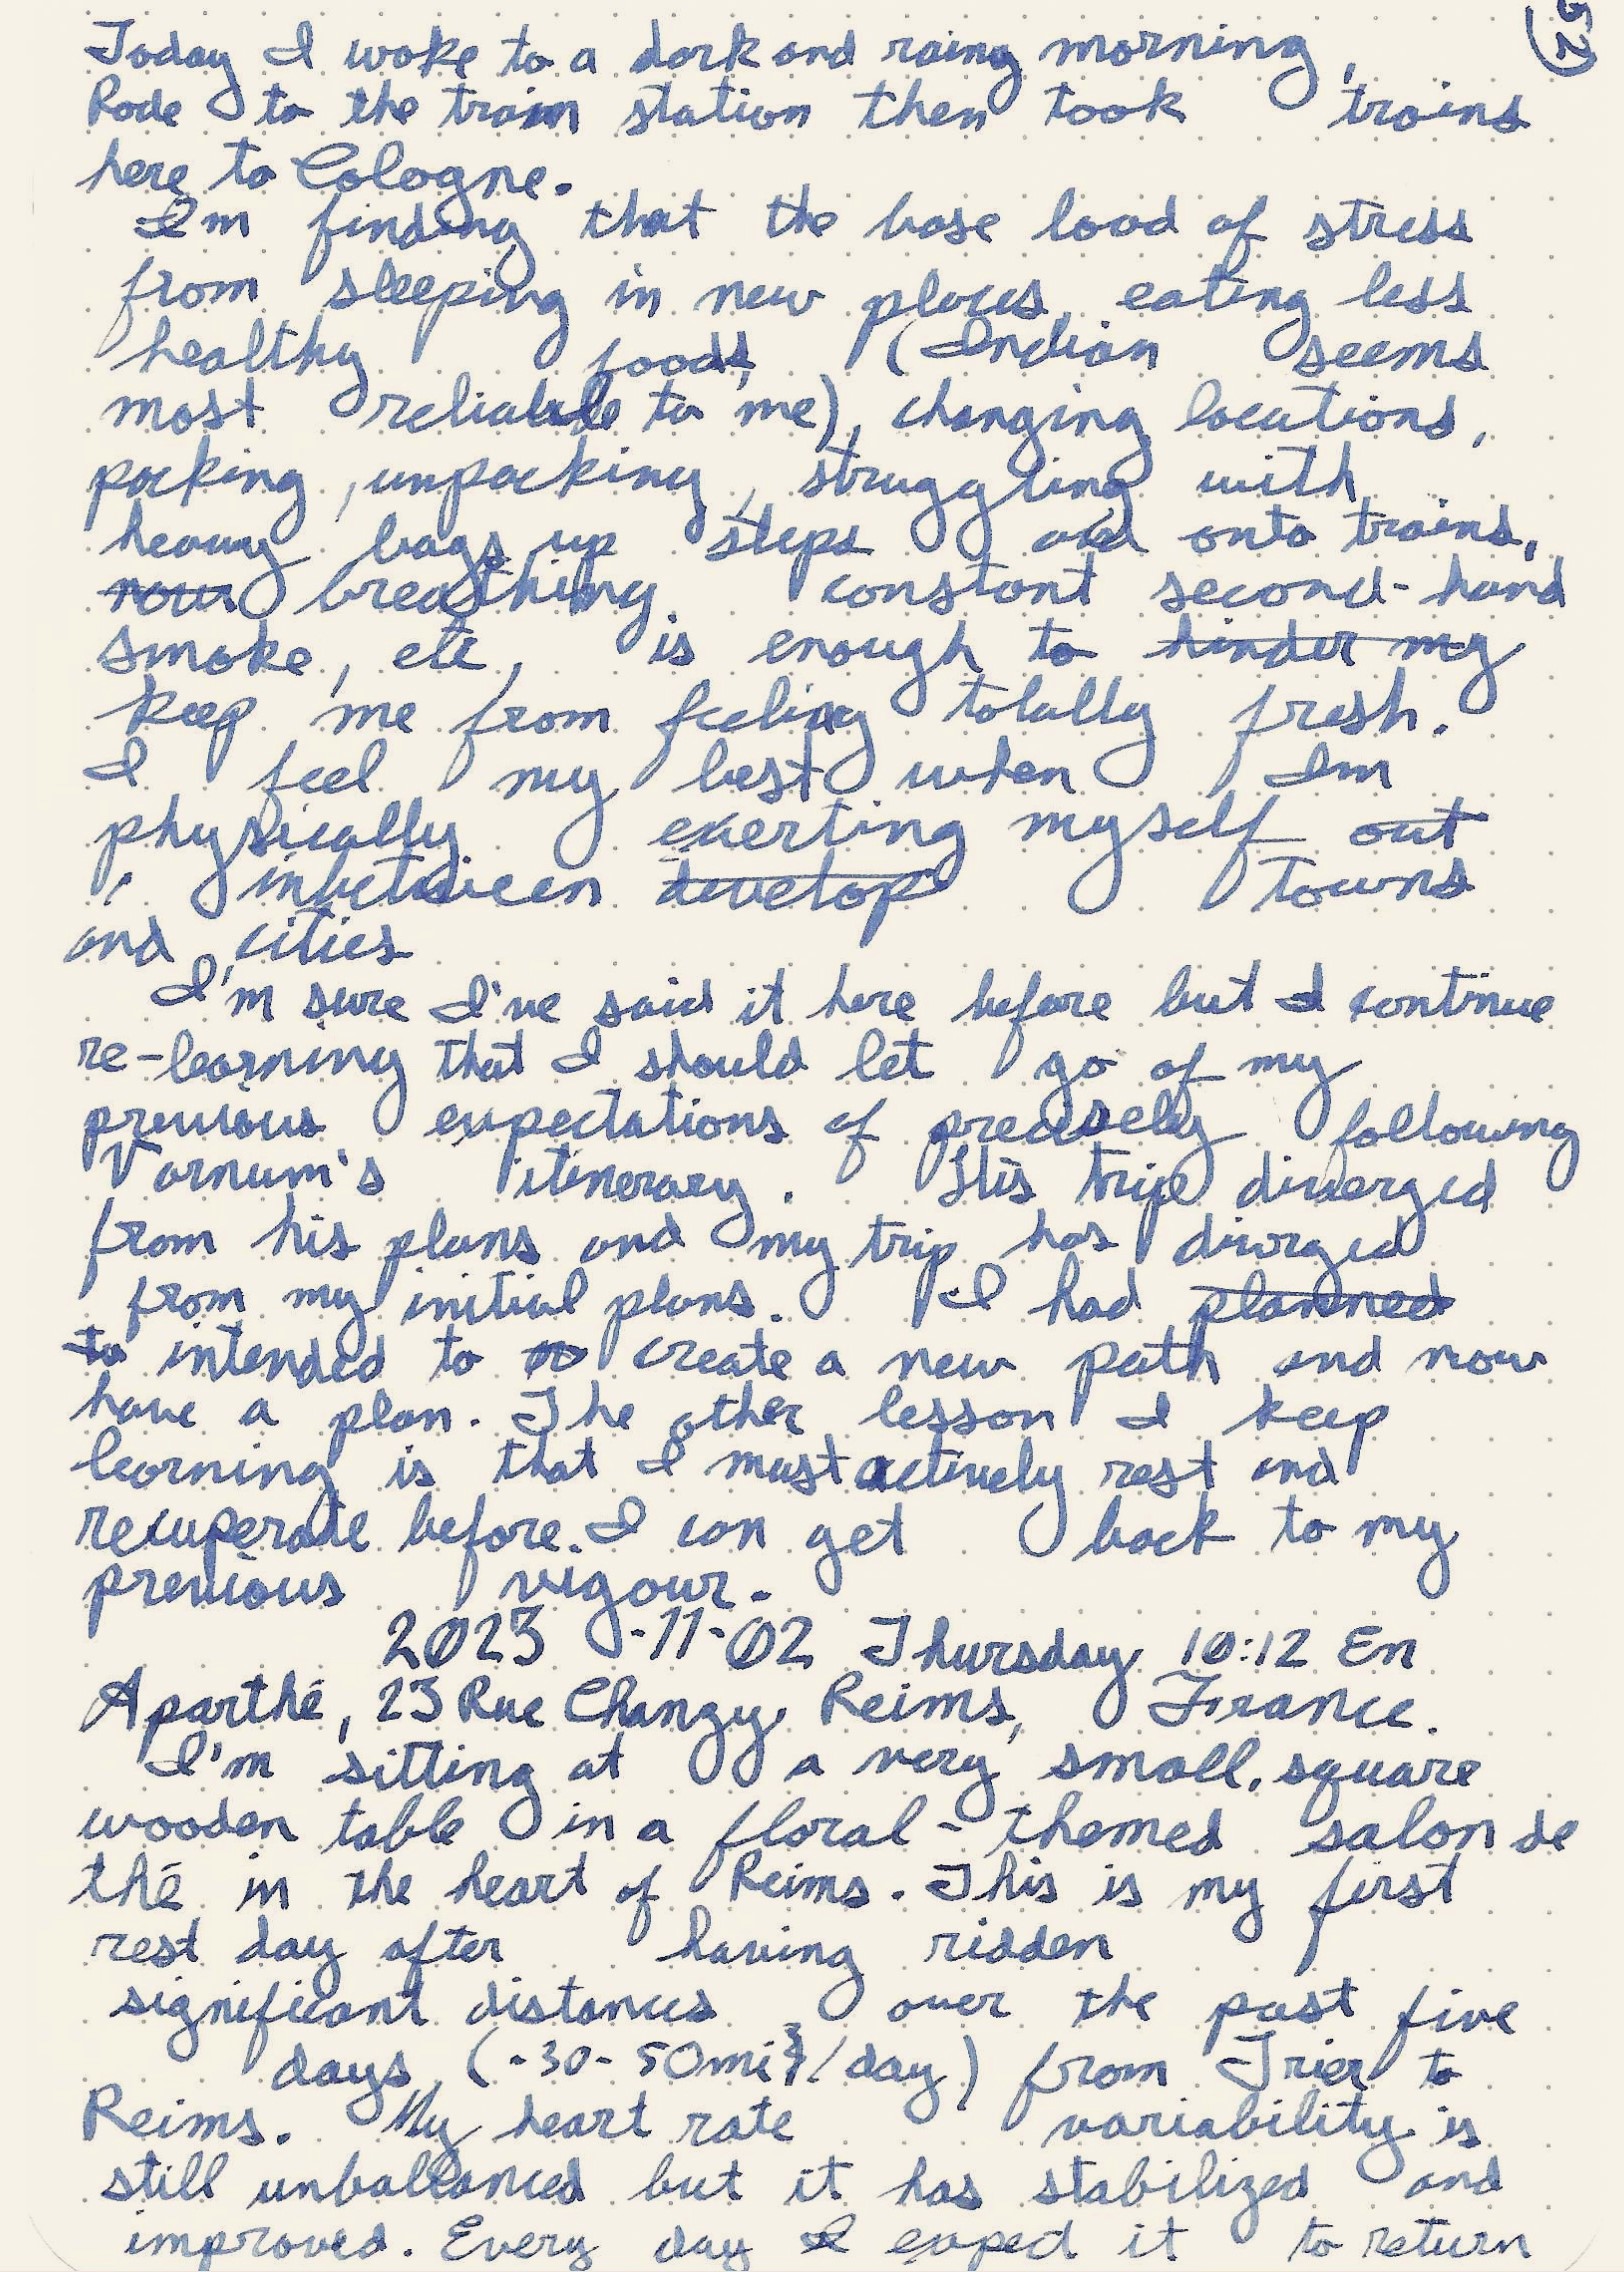 52
Today I woke to a dark and rainy morning,
Rode to the train station then took trains
here to Cologne.
I'm finding that the base load of stress
from sleeping in new places, eating less
healthy foods, (Indian seems
most reliable to me), changing locations,
packing, unpacking, struggling with
heavy bags up steps and onto trains,
now breathing constant second-hand
smoke, etc, is enough to hinder my
keep me from feeling totally fresh.
I feel my best when I'm
physically exerting myself out
inbetween develop towns
and cities
I'm sure I've said it here before but I continue
re-learning that I should let go of my
previous expectations of precisely following
Varnum's itinerary. His trip diverged
from his plans and my trip has diverged
from my initial plans. I had planned
to intended to create a new path and now
have a plan. The other lesson I keep
learning is that I must actively rest and
recuperate before I can get back to my
previous vigour.
2023-11-02 Thursday 10:12 En
Aparthé, 23 Rue Chanzy, Reims, France.
I'm sitting at a very small, square
wooden table in a floral-themed salon de
thé in the heart of Reims. This is my first
rest day after having ridden
significant distances over the past five
days (~30-50mi/day) from Trier to
Reims. My heart rate variability is
still unballanced but it has stabilized and
improved. Every day I expect it to return